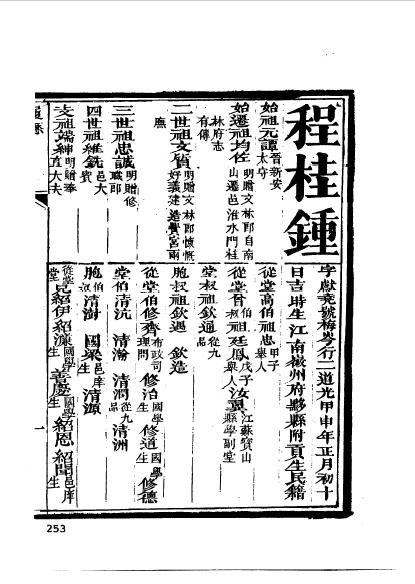 程桂鍾
字獻堯號梅岑行二道光甲申年正月初十
日吉時生江南徽州府黟縣附貢生民籍
始祖元譚晉新安太守
始遷祖均佐明贈文林郎自南山遷邑淮水門桂林府志有傳
二世祖文質明贈文林郎慷慨好義建造黌宮兩廡
三世祖忠誠明贈修職郎
四世祖維銑邑大賓
支祖端紳明贈奉直大夫
從堂高伯祖忠甲子舉人
從堂曾伯叔祖廷鳳戊子舉人 汝翼江蘇寶山縣學副堂
堂叔祖欽通從九品
胞叔祖欽遇 欽造
從堂伯修齊布政司理問 修泊國學生 修道國學生 修德
堂伯清沅 清瀚 清潤從九品 清洲
胞伯叔清澍 國梁邑庠生 清源
從堂堂兄紹伊 紹濂國學生 善慶國學生 紹恩 紹聞邑庠生
一
253